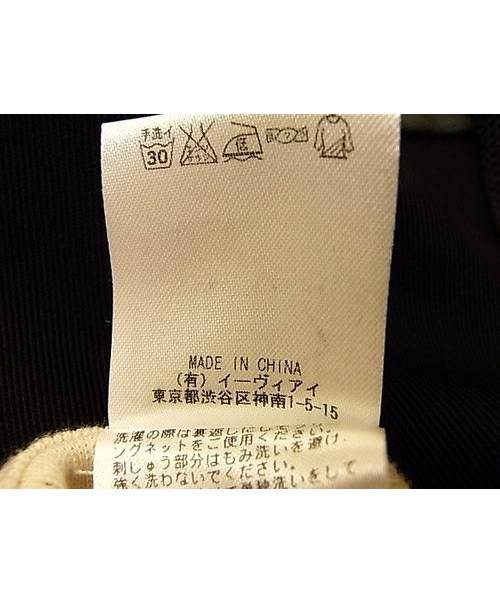 手洗イ
30
低
MADE IN CHINA
(有)イーヴィアイ
東京都渋谷区神南1-5-15
洗濯の際は裏返しにしてさい。
ングネットをご使用ください。
刺しゅう部分はもみ洗いを避け、
強く洗わないでください。
単独洗いをして